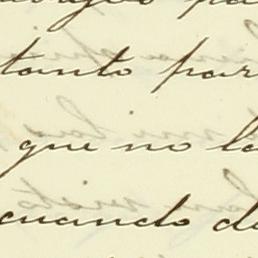 tanto par
que no la
cuando de